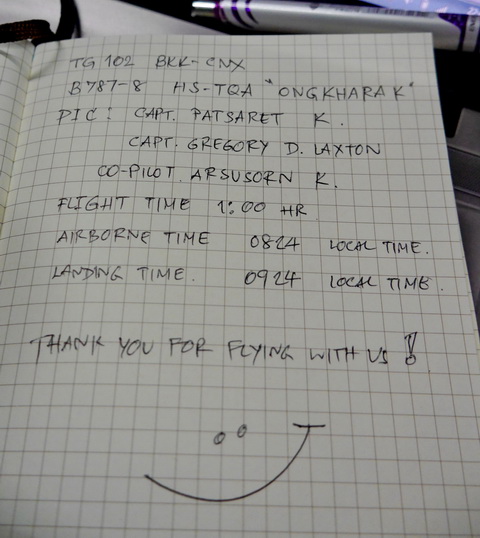 TG 102 BKK-CNX
B787-8 HS-TQA "ONGKHARAK"
PIC: CAPT. PATSARET K.
CAPT. GREGORY D. LAXTON
CO-PILOT. ARSUSORN K.
FLIGHT TIME 1:00 HR
AIRBORNE TIME 0824 LOCAL TIME.
LANDING TIME. 0924 LOCAL TIME.
THANK YOU FOR FLYING WITH US!